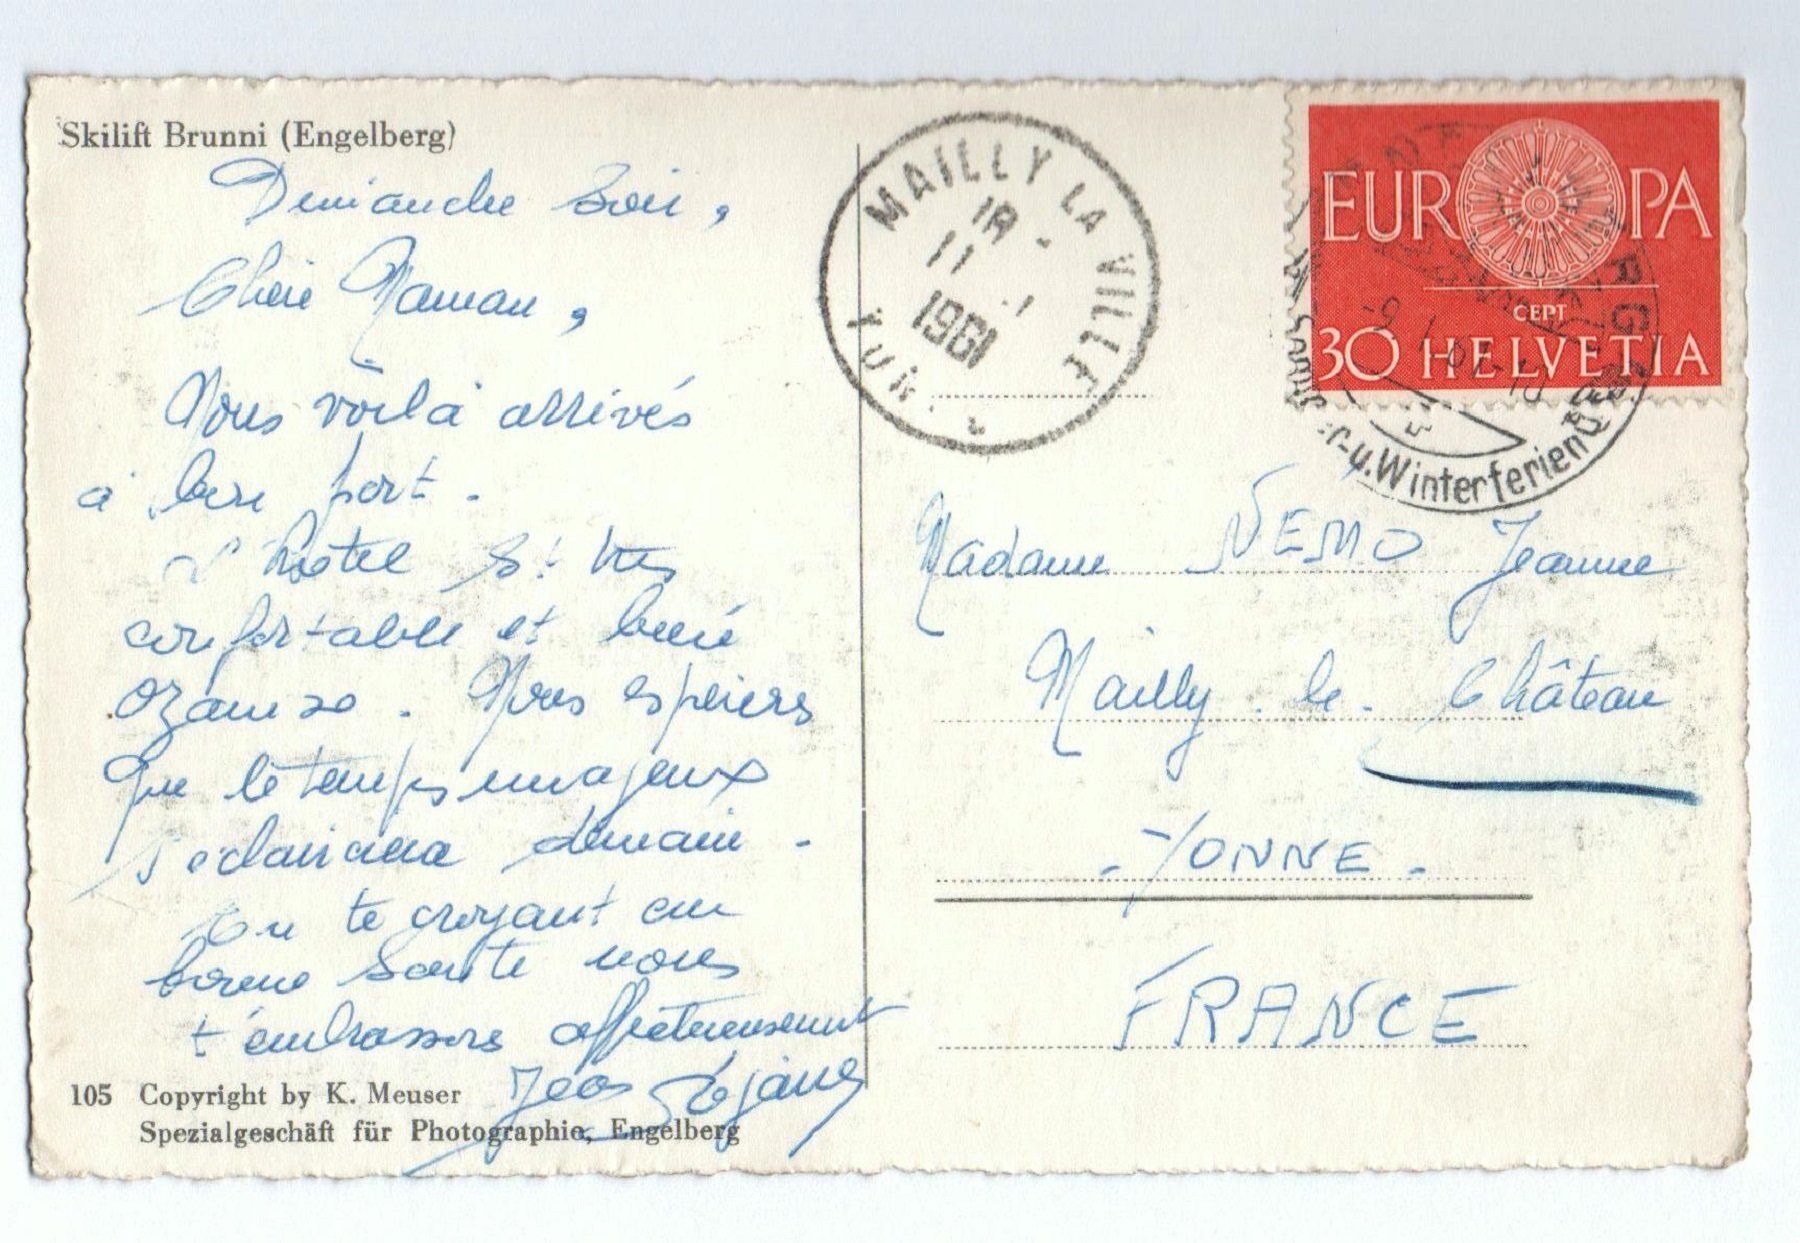 Skilift Brunni (Engelberg)
Dimanche Soir,
Chère Maman,
Nous voilà arrivés
à bon port.
L'hôtel St très
confortable et bien
organisé. Nous espérons
que le temps nuageux
s'éclaircira demain.
En te croyant en
bonne santé nous
t'embrassons affectueusement
105 Copyright by K. Meuser
Spezialgeschäft für Photographie, Engelberg
MAILLY LA VILLE
18 -
11 - 1
1961
EUROPA
CEPT
30 HELVETIA
u. Winterferien
Madame NEMO Jeanne
Mailly - le - Château
- YONNE -
FRANCE